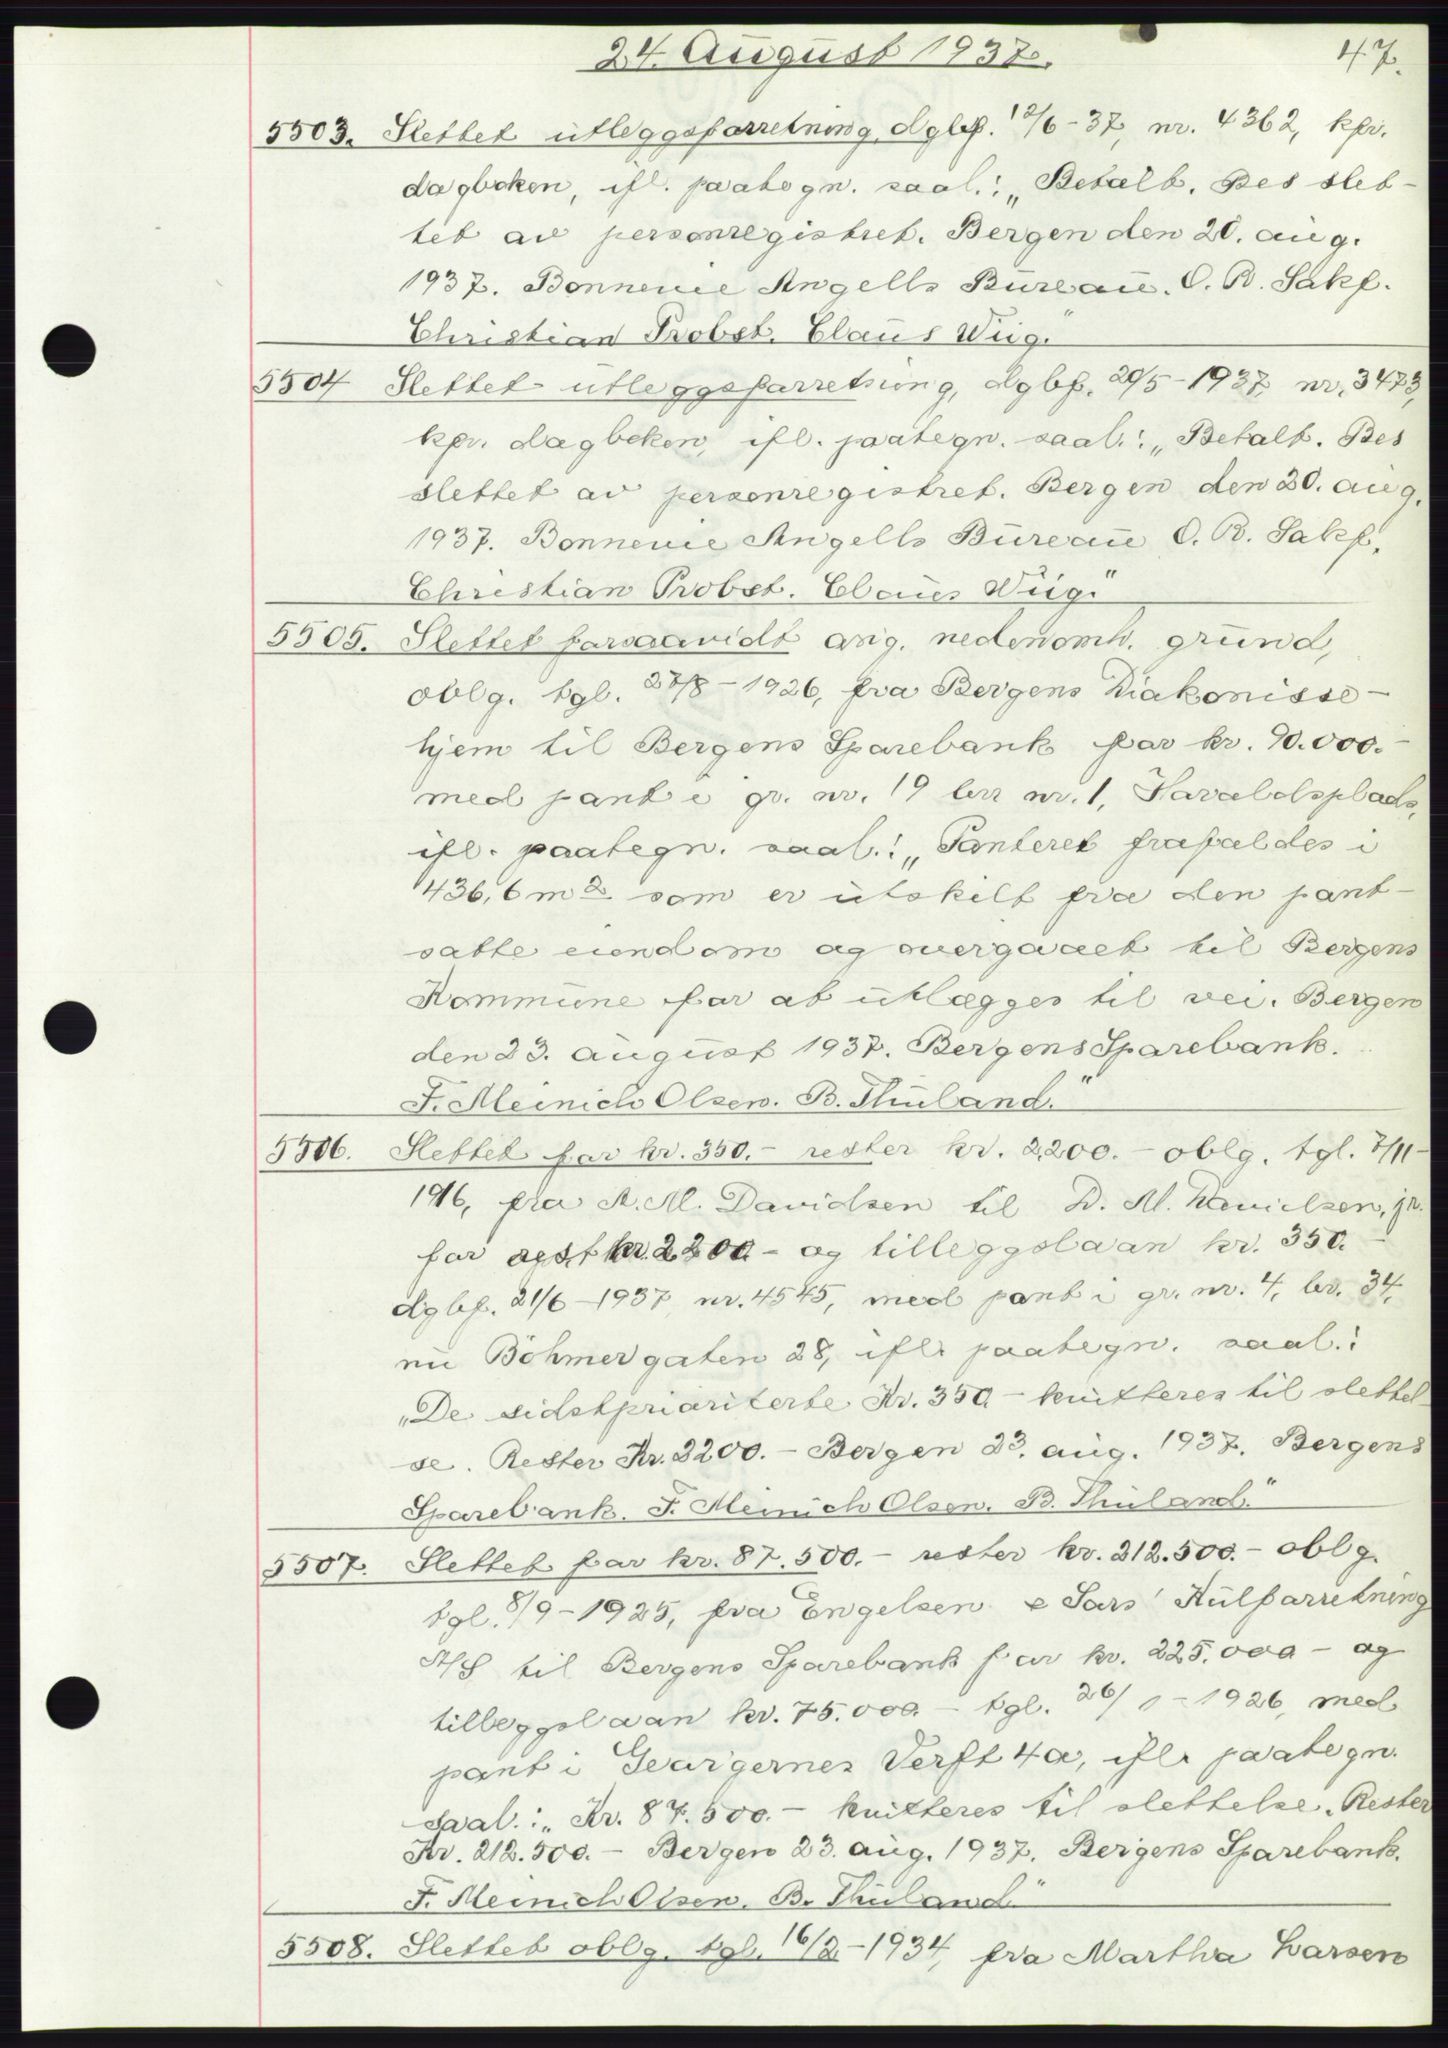 24. August 1937.
47.
5503. Slettet utleggsforretning, dgbf. 12/6-37, nr. 4362, kfr.
dagboken, ifl. paategn. saal.: „Betalt. Bes slet-
tet av personregistret. Bergen den 20. aug.
1937. Bonnevie Angells Bureau. O. R. Sakf.
Christian Probst. Claus Wiig."
5504 Slettet utleggsforretning, dgbf. 20/5-1937, nr. 3473,
kfr. dagboken, ifl. paategn. saal.: „Betalt. Bes
slettet av personregistret. Bergen den 20. aug.
1937. Bonnevie Angells Bureau O. R. Sakf.
Christian Probst. Claus Wiig."
5505. Slettet forsaavidt ang. nedenomh. grund,
oblg. tgl. 27/8-1926, fra Bergens Diakonisse-
hjem til Bergens Sparebank for kr. 90.000.-
med pant i gr. nr. 19 br nr. 1, Haraldsplads,
ifl. paategn. saal.: „Panteret frafaldes i
436,6 m2 som er utskilt fra den pant-
satte eiendom og overgaaet til Bergens
Kommune for at utlægges til vei. Bergen
den 23. august 1937. Bergens Sparebank.
F. Meinich Olsen. B. Thuland."
5506. Slettet for kr. 350.- rester kr. 2.200.- oblg. tgl. 7/11-
1916, fra A. M. Davidsen til D. M. Danielsen, jr.
for rest kr. 2200.- og tilleggslaan kr. 350.-
dgbf. 21/6-1937, nr. 4545, med pant i gr. nr. 4, br. 34,
nu Böhmergaten 28, ifl. paategn. saal.:
„De sidstprioriterte Kr. 350.- kvitteres til slettel-
se. Rester Kr. 2200.- Bergen 23. aug. 1937. Bergens
Sparebank. F. Meinich Olsen. B. Thuland."
5507. Slettet for kr. 87.500.- rester kr. 212.500.- oblg.
tgl. 8/9-1925, fra Engelsen & Sars' Kulforretning
A/S til Bergens Sparebank for kr. 225.000.- og
tilleggslaan kr. 75.000.- tgl. 26/1-1926, med
pant i Georgernes Verft 4a, ifl. paategn.
saal.: „Kr. 87.500.- kvitteres til slettelse. Rester
Kr. 212.500.- Bergen 23. aug. 1937. Bergens Sparebank.
F. Meinich Olsen. B. Thuland."
5508. Slettet oblg. tgl. 16/2-1934, fra Martha Larsen